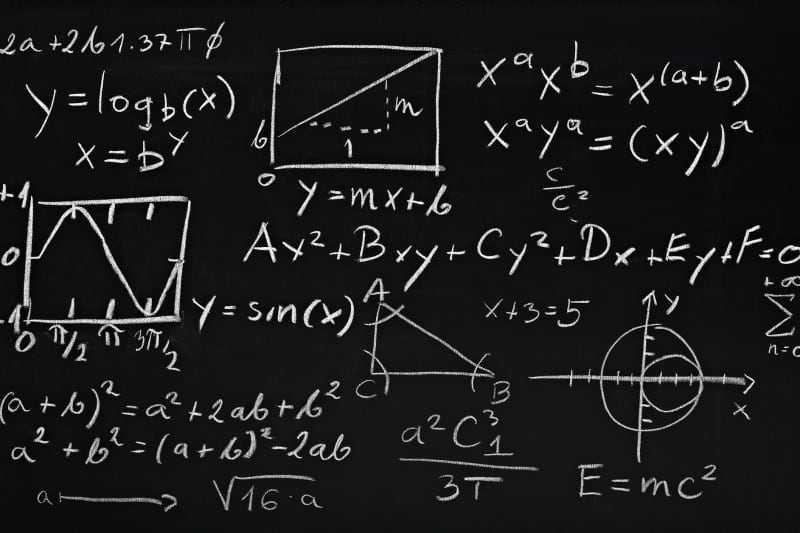 2a+2b 1.37πϕ
y=log_b(x)
x=b^y
b
m
1
0
y=mx+b
x^a x^b = x^(a+b)
x^a y^a = (xy)^a
c/c²
Ax²+Bxy+Cy²+Dx+Ey+F=0
+1
0
-1
0 π/2 π 3π/2
y=sin(x)
A
C
B
x+3=5
y
x
+∞
∑
n=0
(a+b)²=a²+2ab+b²
a²+b²=(a+b)²-2ab
a → √16·a
a²C₁³
3T
E=mc²